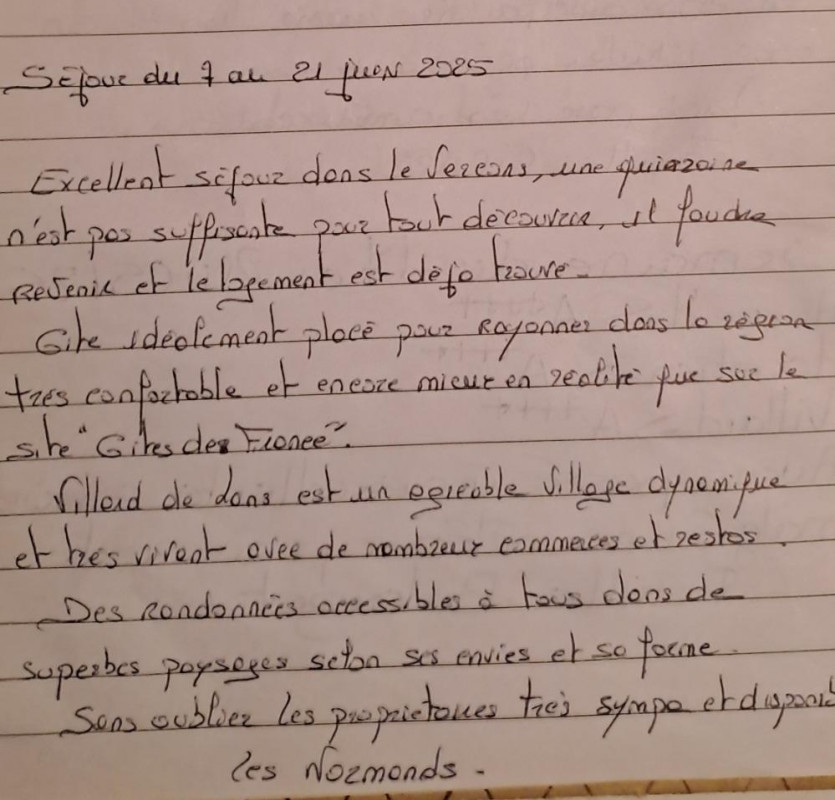 Séjour du 7 au 21 juin 2025
Excellent séjour dans le Vercors, une quinzaine
n'est pas suffisante pour tout découvrir, il faudra
revenir et le logement est déjà trouvé.
Gite idéalement placé pour rayonner dans la région
très confortable et encore mieux en réalité que sur le
site "Gites de France".
Villard de dans est un agréable village dynamique
et très vivant avec de nombreux commerces et restos.
Des randonnées accessibles à tous dans de
superbes paysages selon ses envies et sa forme.
Sans oublier les propriétaires très sympa et disponibl
les Normands.